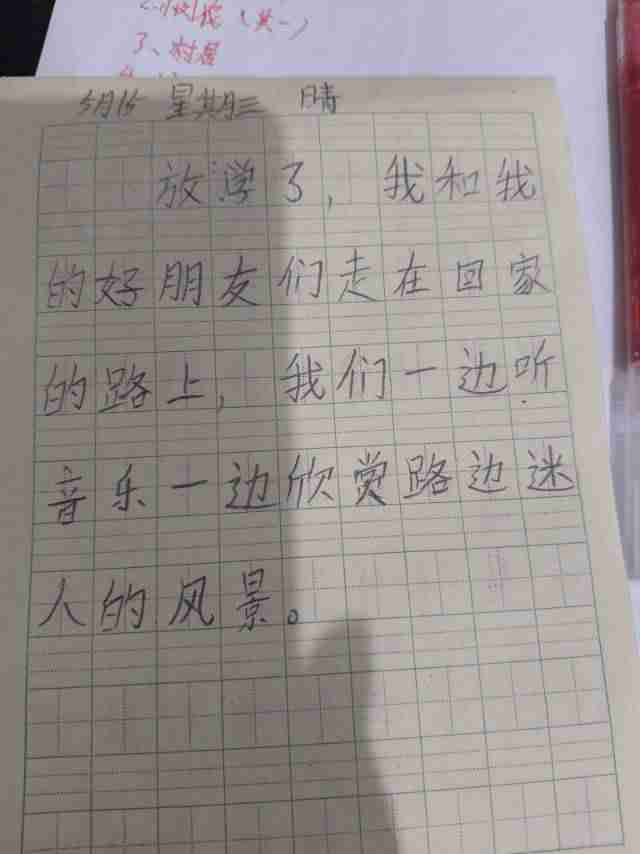 3、村居
5月15 星期三 晴
放学了，我和我
的好朋友们走在回家
的路上，我们一边听
音乐一边欣赏路边迷
人的风景。